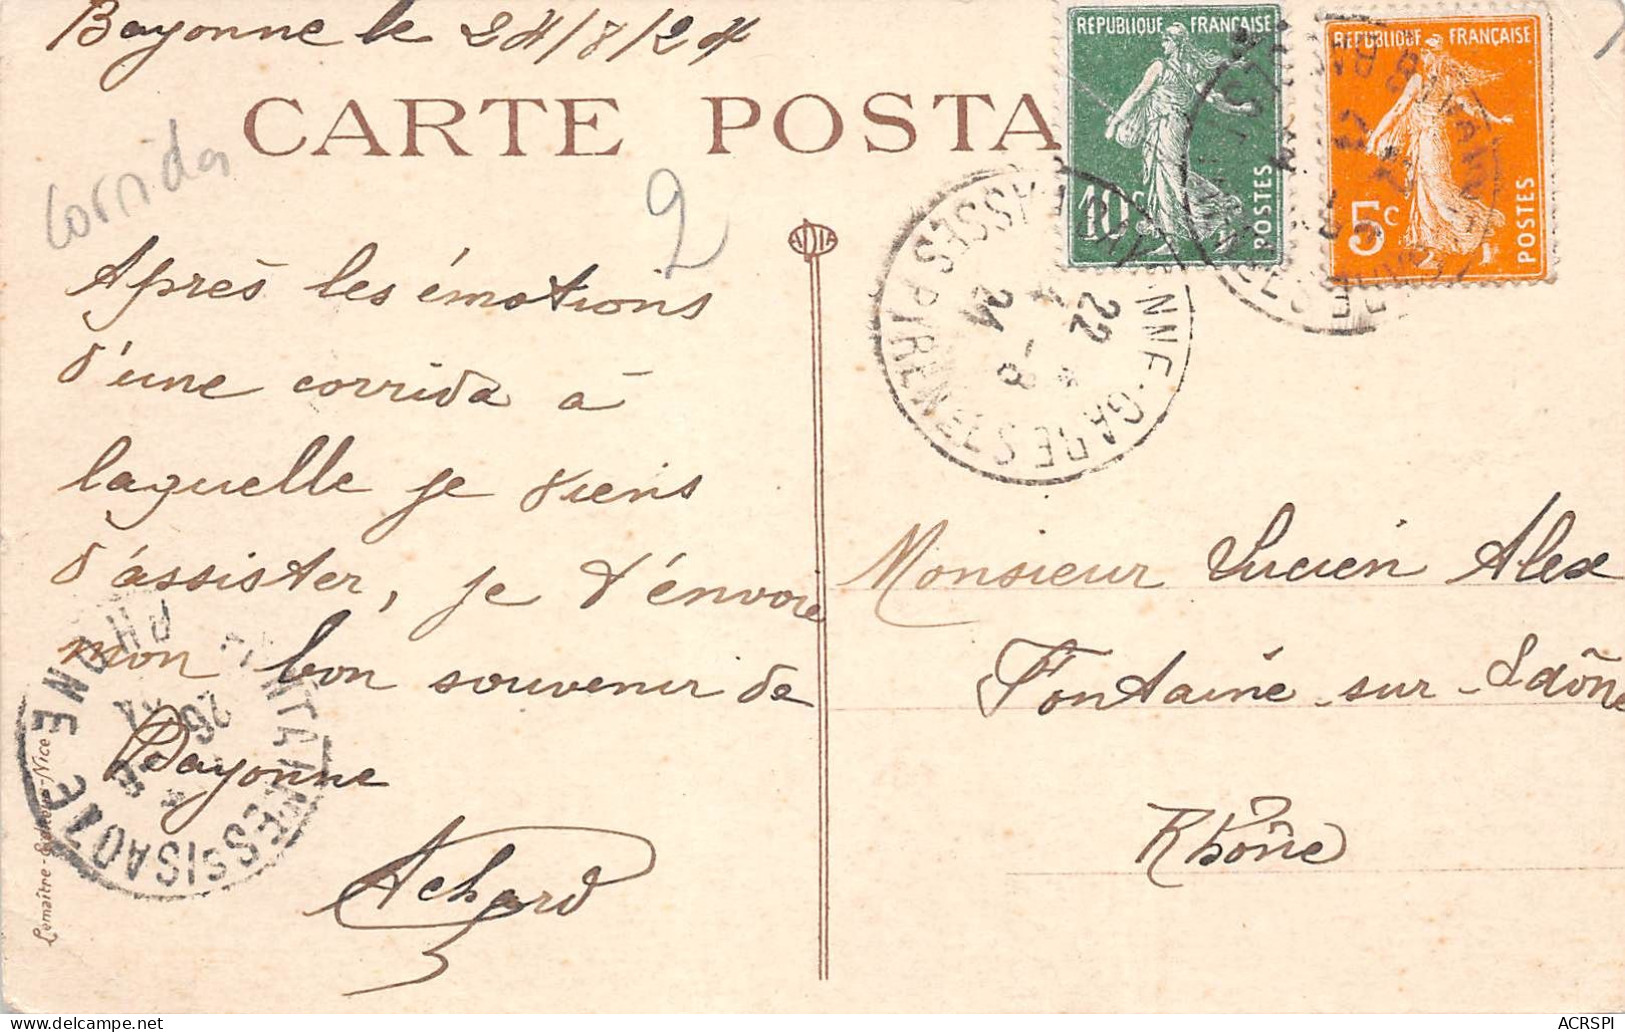 Bayonne le 24/8/24
CARTE POSTA
Corrida
2
Après les émotions
d'une corrida à
laquelle je viens
d'assister, je t'envoie
mon bon souvenir de
Bayonne
Achard
Lemaître - Nice
ADIA
REPUBLIQUE FRANÇAISE
10c
POSTES
REPUBLIQUE FRANÇAISE
5c
POSTES
GARE
BASSES PYRENEES
22
-8
24
Monsieur Lucien Alex
Fontaine sur Saône
Rhône
FONTAINES SUR SAONE
RHONE
26
8
ACRSPI